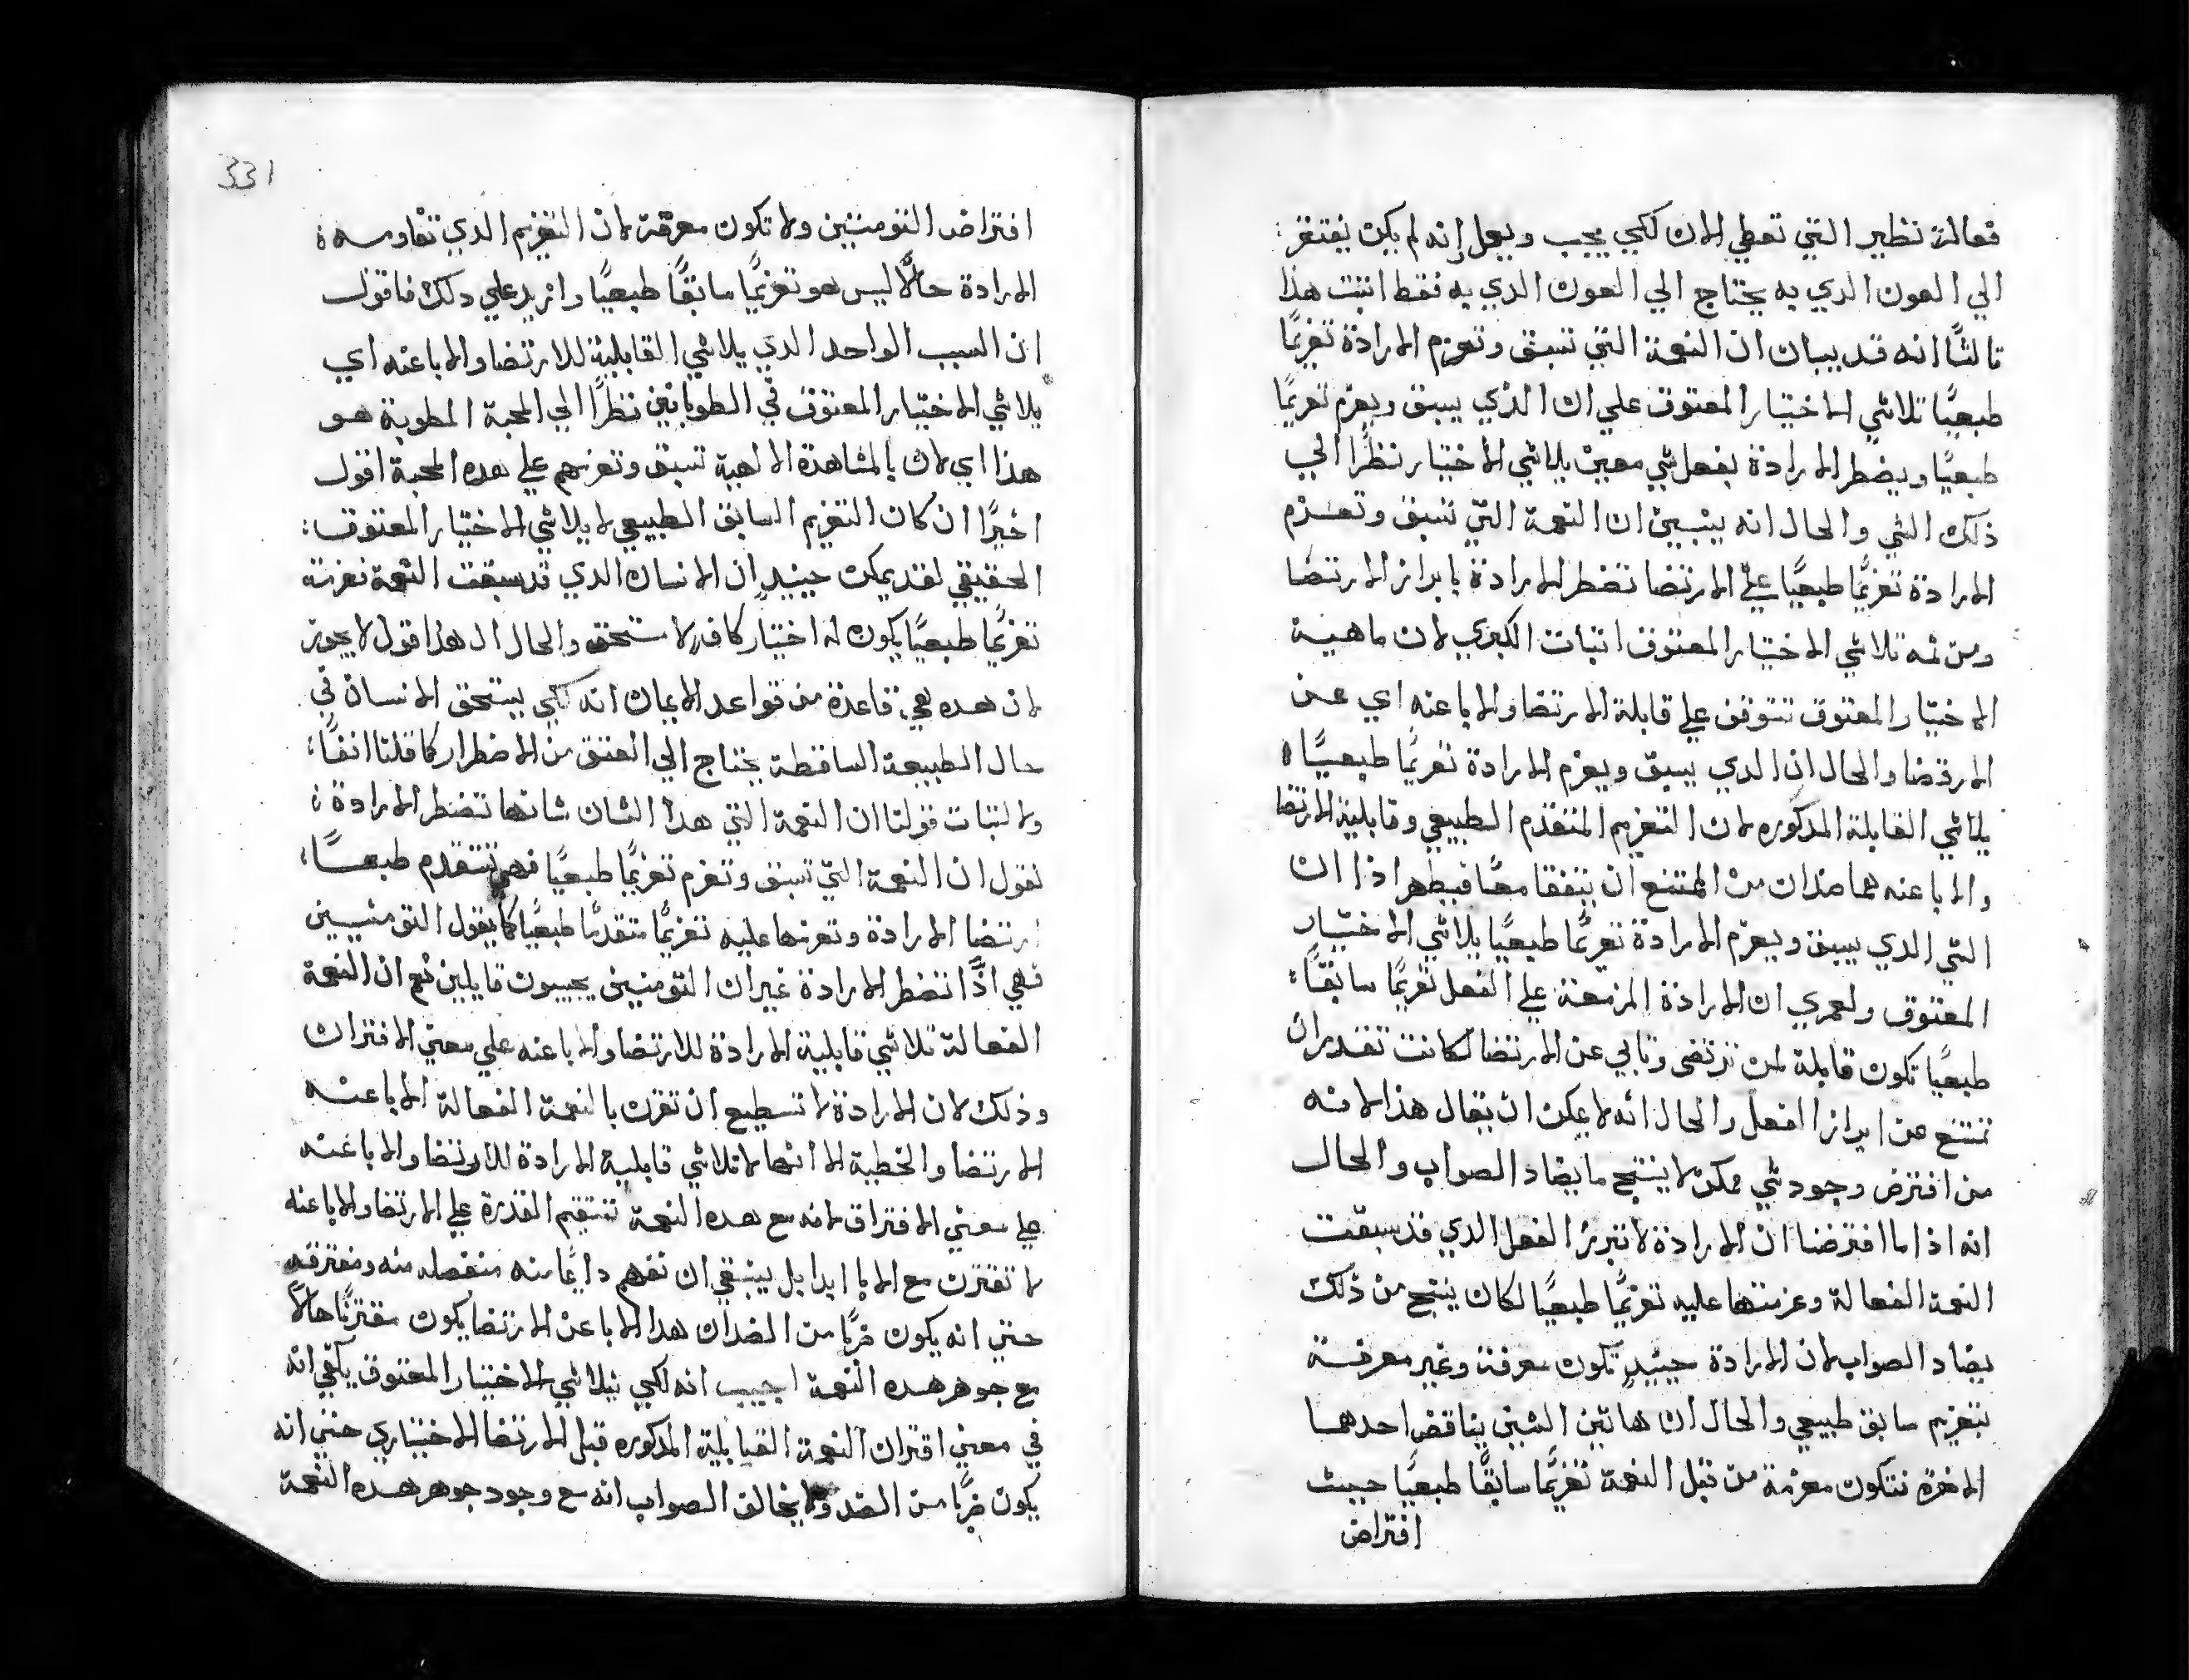 فعالة نظير التي تعطي الان لكي يجب ويعل إنه لم يكن يفتقر
الي العون الدي به يحتاج الي العون الدي به فقط اثبت هذا
ثالثًا انه قد يبان ان النعمة التي تسبق وتعزم الارادة تعزيمًا
طبعيًا تلاشي الاختيار المعتوق علي ان الذي يسبق ويعزم تعزيمًا
طبعيًا ويضطر الارادة بفعل شي معين يلاشي الاختيار نظرًا الي
ذلك الشي والحال انه يتبين ان النعمة التي تسبق وتعزم
الارادة تعزيمًا طبعيًا علي الارتضا تضطر الارادة بابراز الارتضا
ومن ثمه تلاشي الاختيار المعتوق اثبات الكبري لان ماهية
الاختيار المعتوق تتوقف علي قابلة الارتضا والابا عنه اي عن
الارتضا والحال ان الدي يسبق ويعزم الارادة تعزيمًا طبعيًا
يلاشي القابلة المدكوره لان التعزيم المتقدم الطبيعي وقابلية الارتضا
والابا عنه هما ضدان من الممتنع ان يتفقا معًا فيظهر اذا ان
الشي الدي يسبق ويعزم الارادة تعزيمًا طبعيًا يلاشي الاختيار
المعتوق ولعمري ان الارادة المزمعة علي الفعل تعزيمًا سابقًا
طبعيًا تكون قابلة لان ترتضى وتابي عن الارتضا لكانت تقدر ان
تمتنع عن ابراز الفعل والحال انه لا يمكن ان يقال هذا لانه
من افترض وجود شي ممكن لا ينتج ما يضاد الصواب والحال
انه اذا ما افترضنا ان الارادة لا تبرز الفعل الدي قد سبقت
النعمة الفعالة وعزمتها عليه تعزيمًا طبعيًا لكان ينتج من ذلك
يضاد الصواب لان الارادة حينيدٍ تكون معرفة وغير معرفة
بتعزيم سابق طبيعي والحال ان هاتين الشين يناقض احدهما
الاخر فتكون معزمة من قبل النعمة تعزيمًا سابقًا طبعيًا حيث
افتراض
331
افتراض التومنيين ولا تكون معرقة لان التعزيم الدي تقاومه
الارادة حالًا ليس هو تعزيمًا سابقًا طبعيًا وازيد علي دلك فاقول
ان السبب الواحد الدي يلاشي القابلية للارتضا والابا عنه اي
يلاشي الاختيار المعتوق في الطوباين نظرًا الي المحبة المطوبة هو
هذا اي لان بالمشاهدة الالهية تسبق وتعزمهم علي هده المحبة اقول
اخيرًا ان كان التعزيم السابق الطبيعي لا يلاشي الاختيار المعتوق
الحقيقي لقد يمكن حينيدٍ ان الانسان الدي قد سبقت النعمة فعزمته
تعزيمًا طبعيًا يكون له اختيار كاف لاستحق والحال ان هذا قول لا يجوز
لان هده هي قاعدة من قواعد الايمان انه لكي يستحق الانسان في
حال الطبيعة الساقطة يحتاج الي العتق من الاضطرار كما قلنا انفًا
ولاثبات قولنا ان النعمة التي هدا الشان شانها تضطر الارادة
نقول ان النعمة التي تسبق وتعزم تعزيمًا طبعيًا فهي تتقدم طبعًا
ارتضا الارادة وتعزمها عليه تعزيمًا متقدمًا طبعيًا كما يقول التومنيين
فهي اذًا تضطر الارادة غير ان التومنيين يجيبون قايلين نعم ان النعمة
الفعالة تلاشي قابلية الارادة للارتضا والابا عنه علي معني الاقتران
وذلك لان الارادة لا تستطيع ان تقرن بالنعمة الفعالة الابا عنه
الارتضا والخطية الا انها لا تلاشي قابلية الارادة للارتضا والابا عنه
علي معني الافتراق لانه مع هده النعمة تستقيم القدرة علي الارتضا والابا عنه
لا تقترن مع الابا ابدا بل ينبغي ان تفهم دايمًا منه منفصله منه ومفترقه
حتي انه يكون ضربًا من الضدان هدا الابا عن الارتضا يكون مقترنًا حالًا
مع جوهر هده النعمة اجيب انه لكي يلاشي الاختيار المعتوق يكفي انه
في معني اقتران النعمة القابلية المدكوره قبل الارتضا الاختياري حتي انه
يكون ضربًا من الضد ولا يخالف الصواب انه مع وجود جوهر هده النعمة